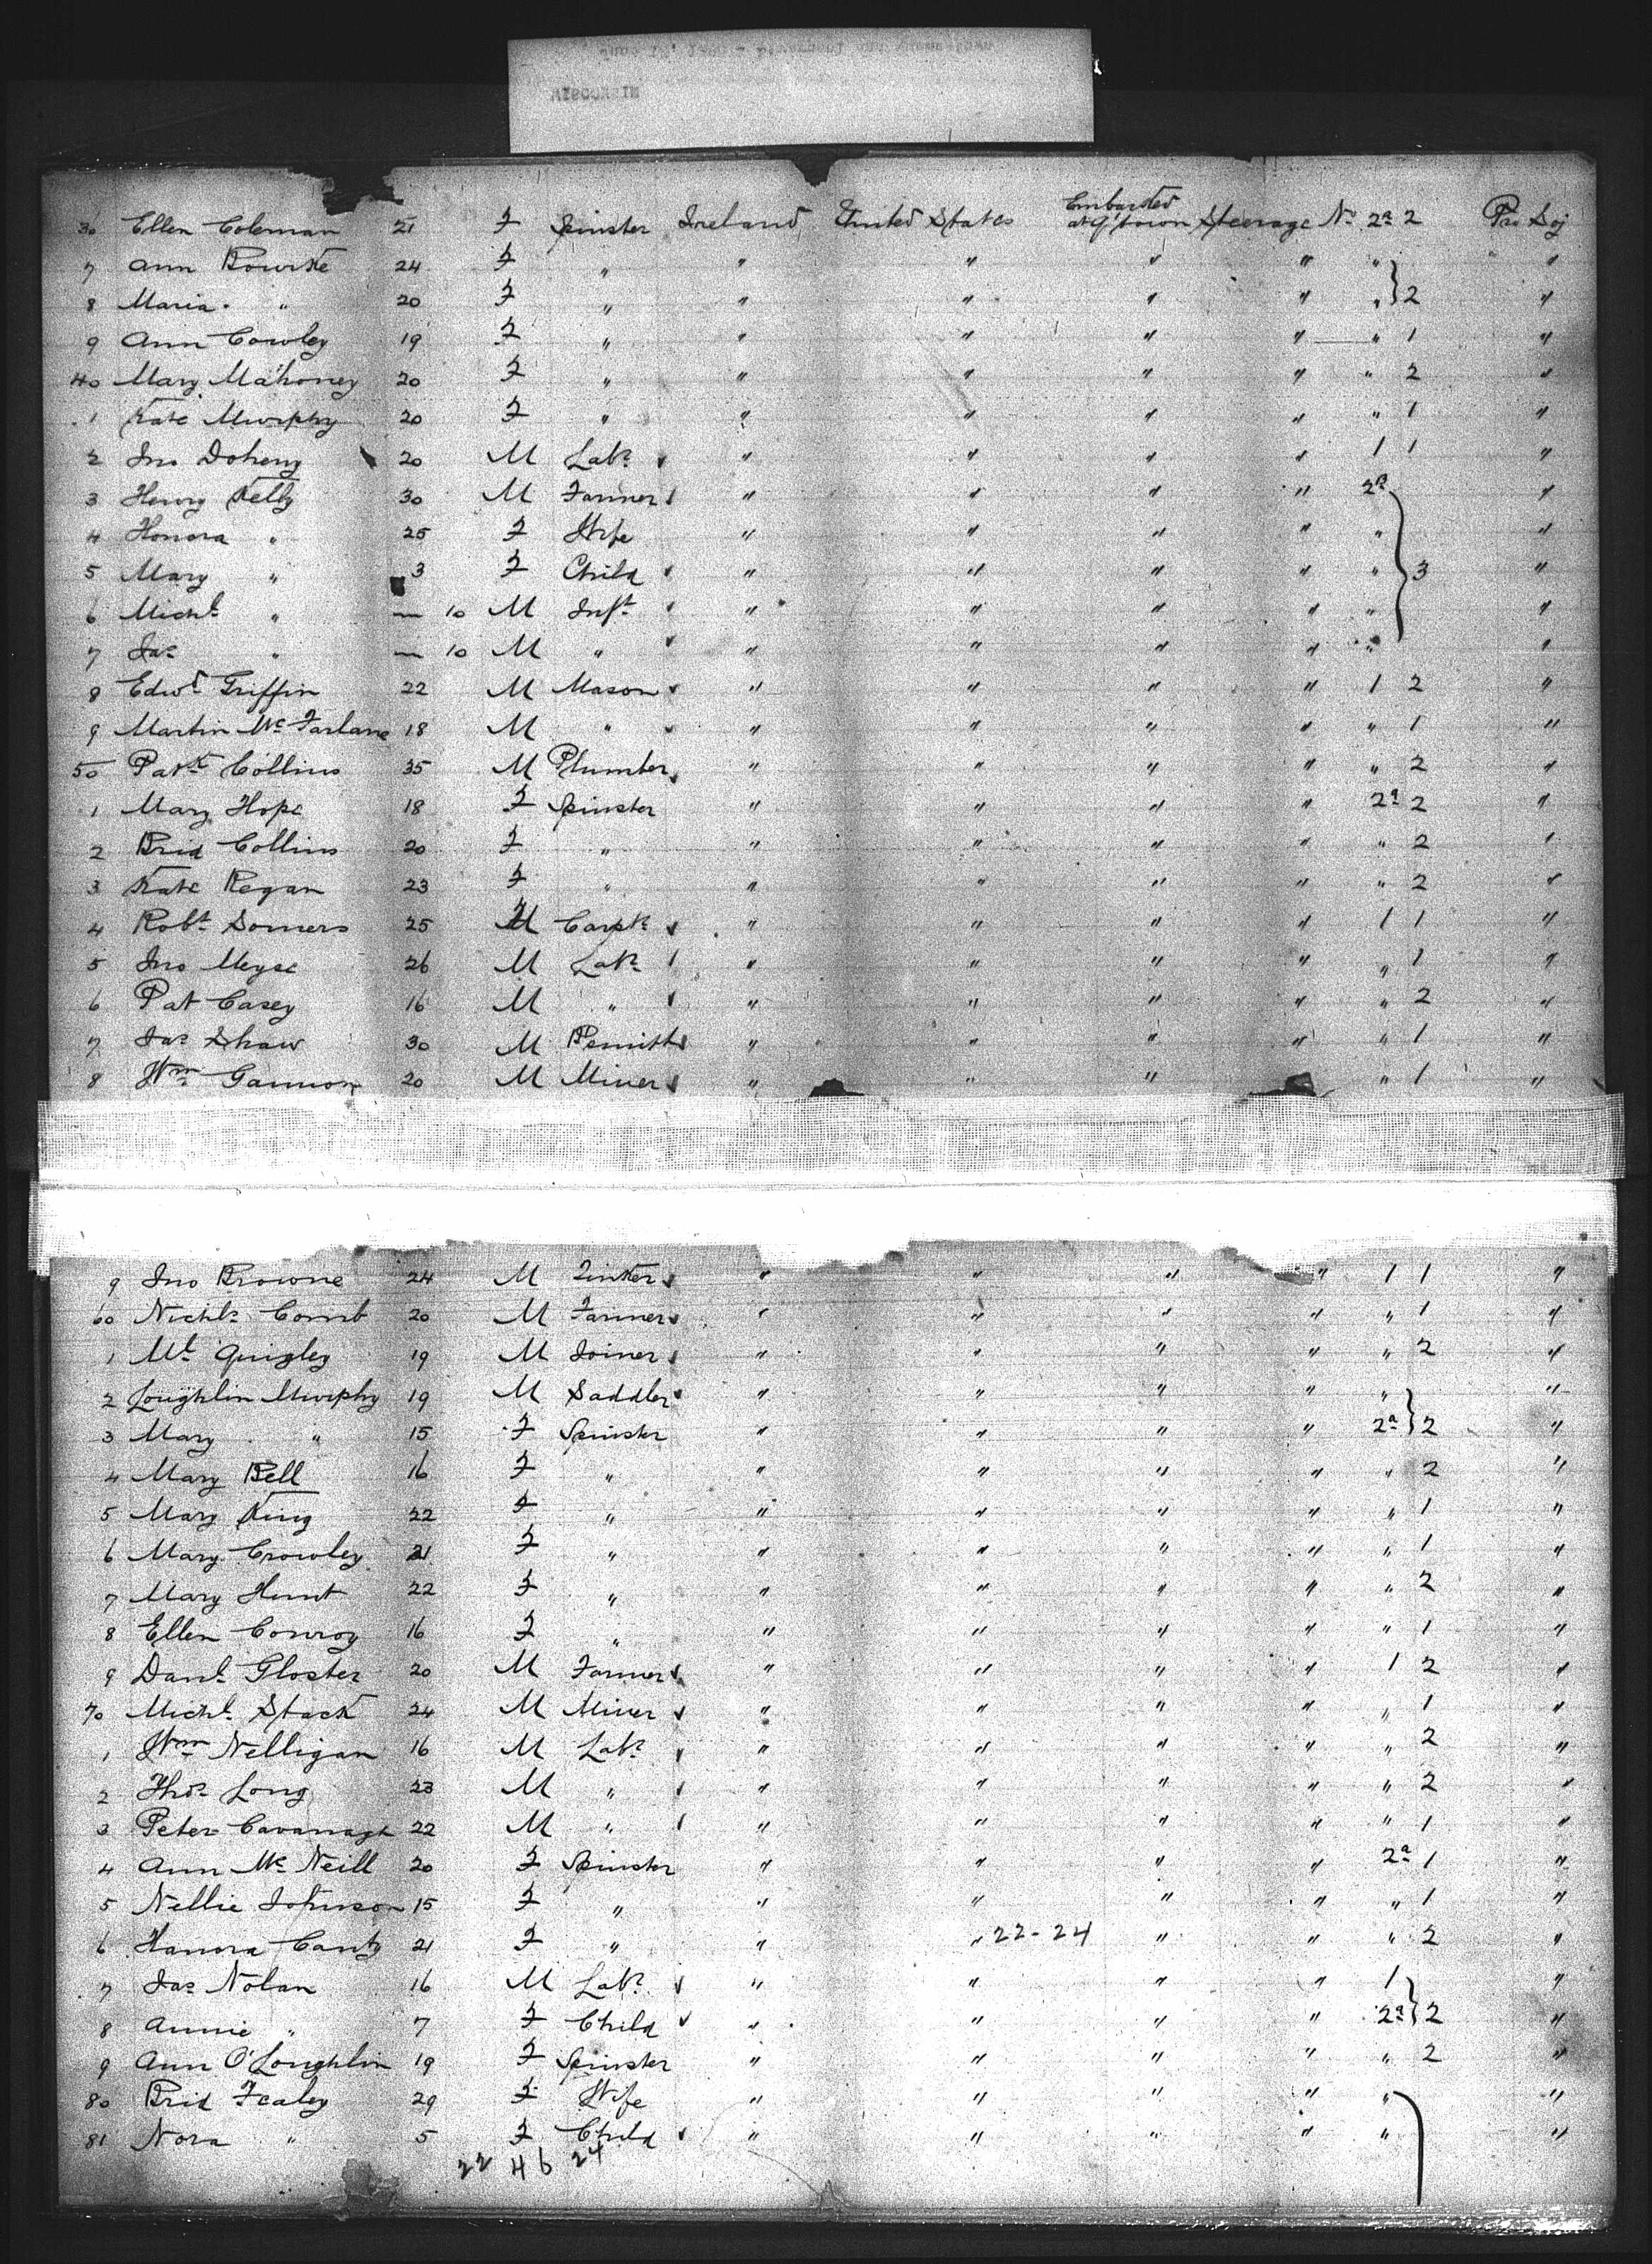 WISCONSIN
36 Ellen Coleman 21 F Spinster Ireland United States Embarked at Q'town Steerage No 2a 2 Pro Soj
7 Ann Bourke 24 F " " " " " "  "
8 Maria " 20 F " " " " " " 2 "
9 Ann Cowley 19 F " " " " " " 1 "
40 Mary Mahoney 20 F " " " " " " 2 "
1 Kate Murphy 20 F " " " " " " 1 "
2 Jno Doheny 20 M Labr " " " " 1 1 "
3 Henry Kelly 30 M Farmer " " " " 2a "
4 Honora " 25 F Wife " " " " " "
5 Mary " 3 F Child " " " " " 3 "
6 Michl " — 10 M Inft " " " " " "
7 Jas " — 10 M " " " " " " "
8 Edwd Griffin 22 M Mason " " " " 1 2 "
9 Martin McFarlane 18 M " " " " " " 1 "
50 Patk Collins 35 M Plumber " " " " " 2 "
1 Mary Hope 18 F Spinster " " " " 2a 2 "
2 Brid Collins 20 F " " " " " " 2 "
3 Kate Regan 23 F " " " " " " 2 "
4 Robt Somers 25 M Carptr " " " " 1 1 "
5 Jno Meyse 26 M Labr " " " " " 1 "
6 Pat Casey 16 M " " " " " " 2 "
7 Jas Shaw 30 M Bsmith " " " " " 1 "
8 Wm Gannon 20 M Miner " " " " 1 "
9 Jno Browne 24 M Tinker " " " " 1 1 "
60 Nichls Comb 20 M Farmer " " " " " 1 "
1 Ml Quigley 19 M Joiner " " " " " 2 "
2 Loughlin Murphy 19 M Saddler " " " " " "
3 Mary " 15 F Spinster " " " " 2a 2 "
4 Mary Bell 16 F " " " " " " 2 "
5 Mary King 22 F " " " " " " 1 "
6 Mary Crowley 21 F " " " " " " 1 "
7 Mary Hunt 22 F " " " " " " 2 "
8 Ellen Conroy 16 F " " " " " " 1 "
9 Danl Gloster 20 M Farmer " " " " 1 2 "
70 Michl Stack 24 M Miner " " " " " 1 "
1 Wm Nelligan 16 M Labr " " " " " 2 "
2 Thos Long 23 M " " " " " " 2 "
3 Peter Cavanagh 22 M " " " " " " 1 "
4 Ann McNeill 20 F Spinster " " " " 2a 1 "
5 Nellie Johnson 15 F " " " " " " 1 "
6 Hanora Canty 21 F " " " 22-24 " " " 2 "
7 Jas Nolan 16 M Labr " " " " 1 "
8 Annie " 7 F Child " " " " 2a 2 "
9 Ann O'Loughlin 19 F Spinster " " " " " 2 "
80 Brid Fealey 29 F Wife " " " " " "
81 Nora " 5 F Child " " " " " "
22 46 24